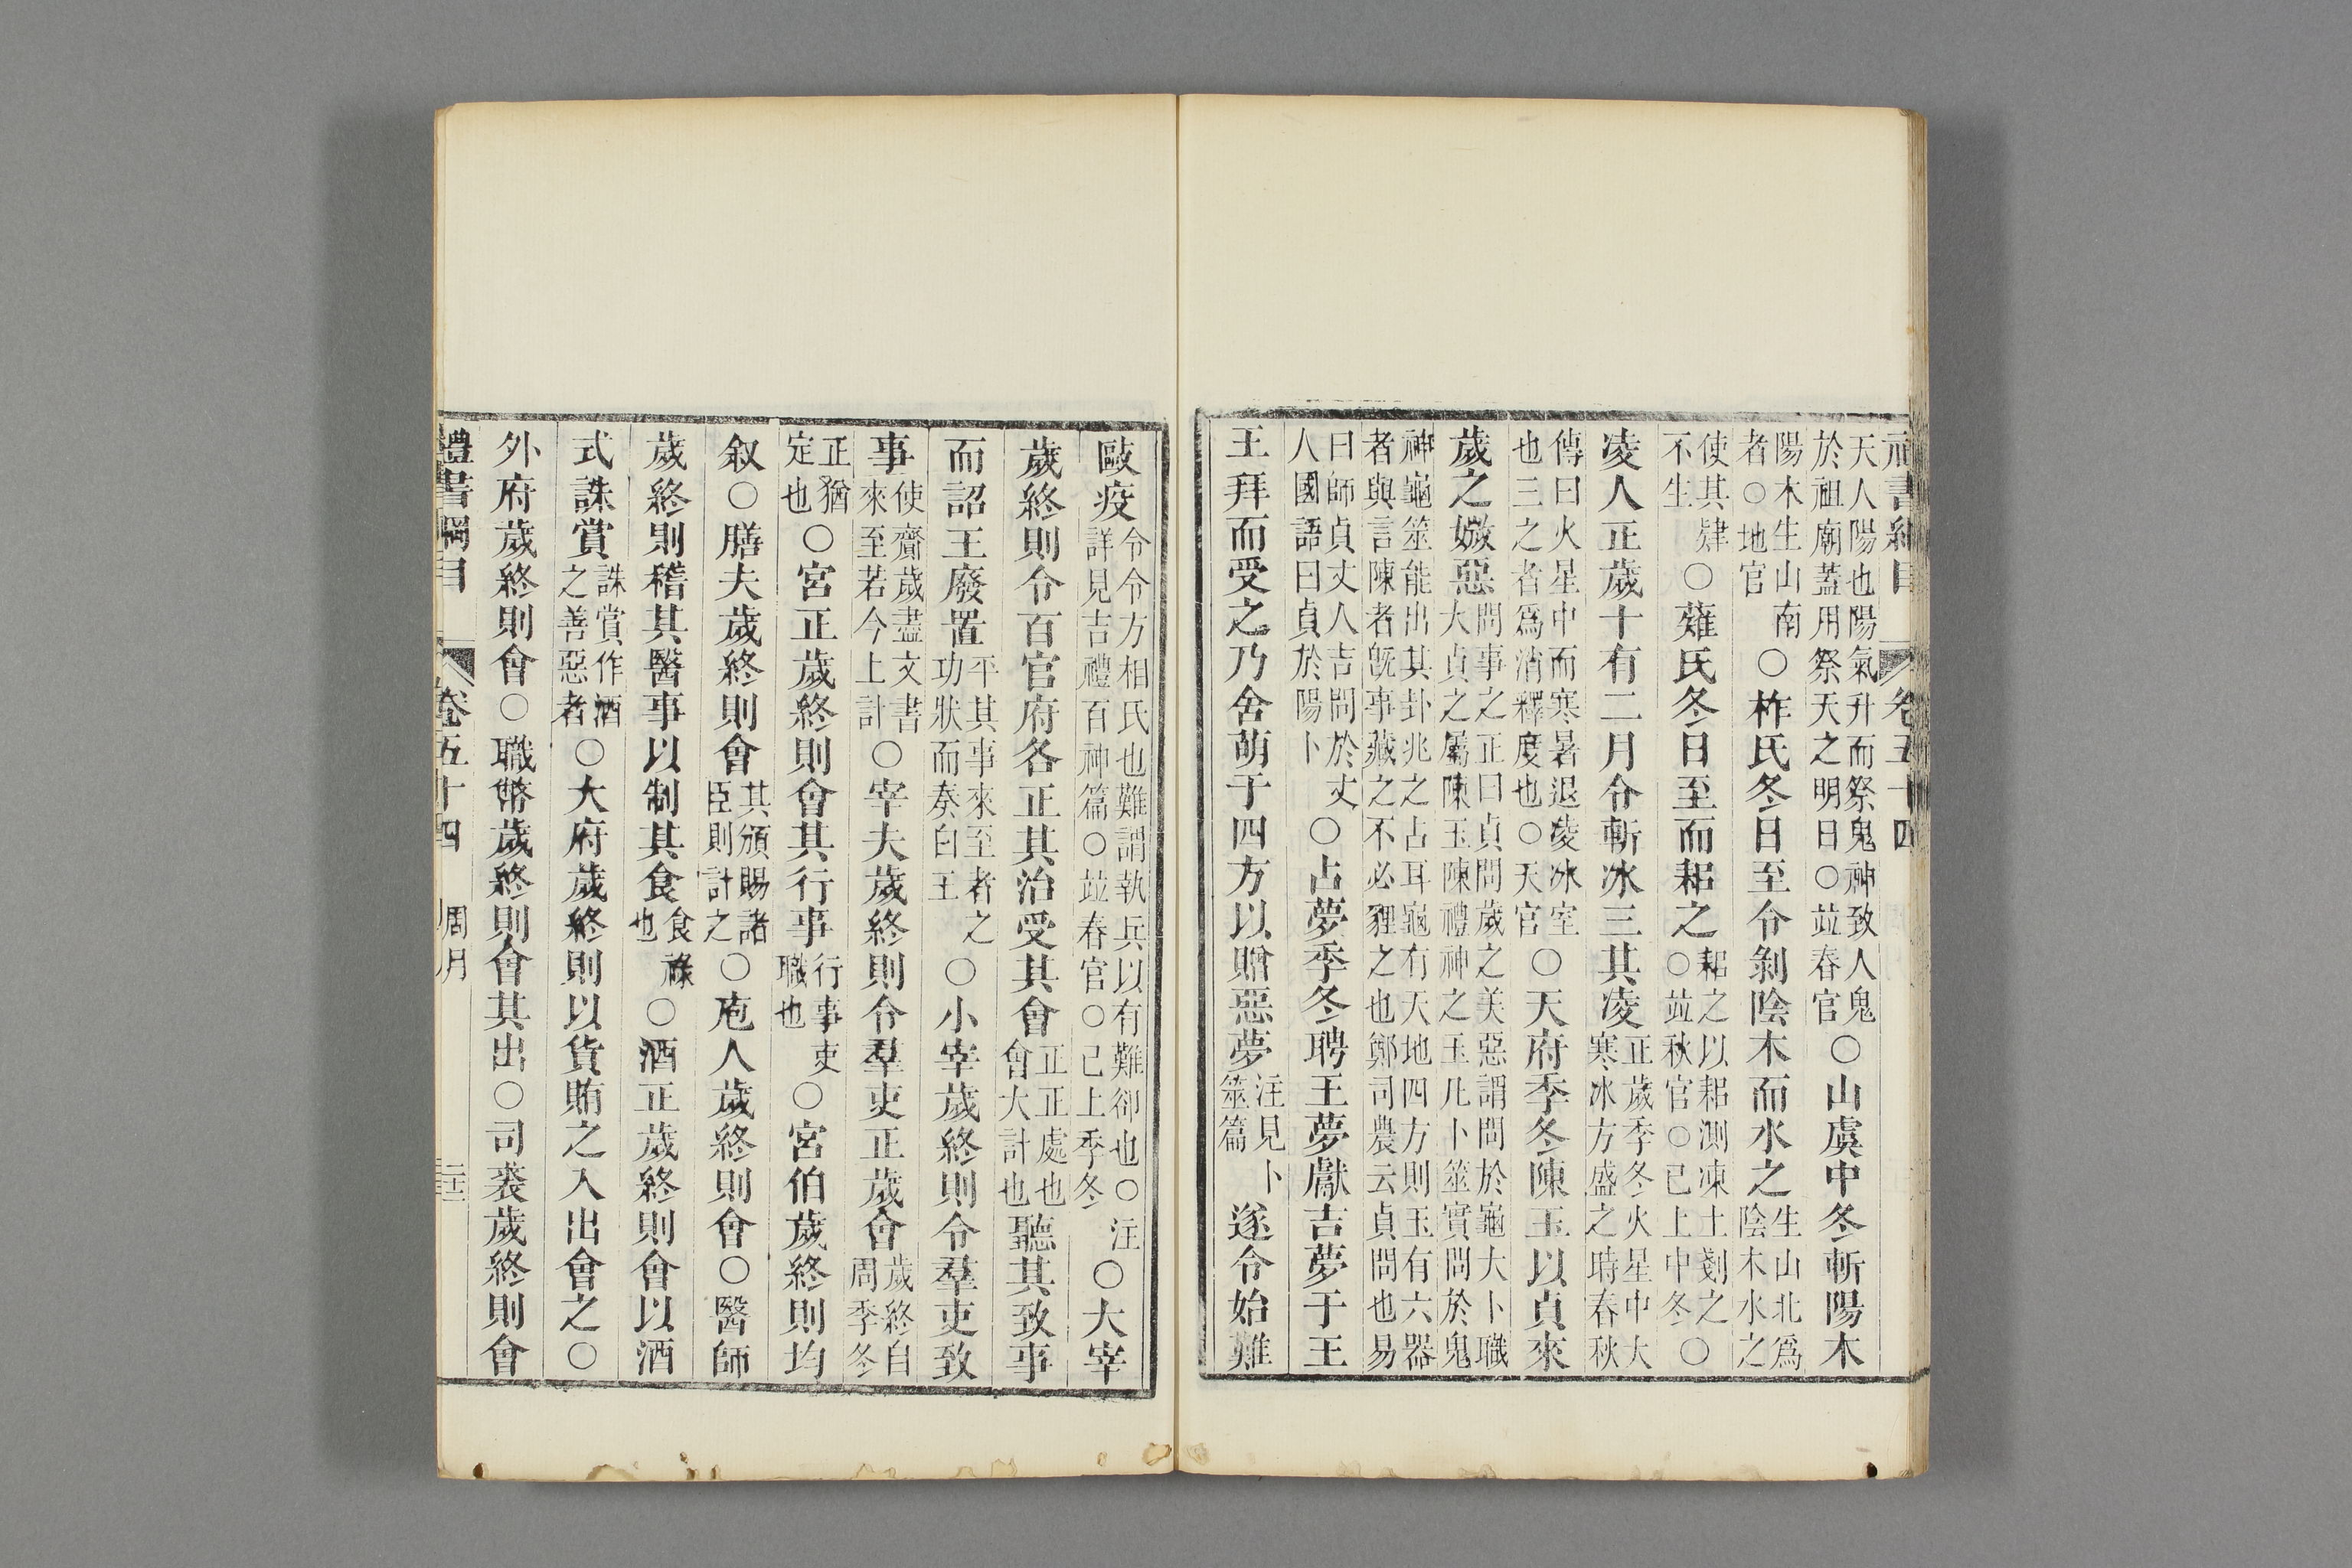 禮書綱目 卷五十四
天人陽也陽氣升而祭鬼神致人鬼於祖廟蓋用祭天之明日○竝春官○山虞中冬斬陽木
陽木生山南者○地官○柞氏冬日至令剝陰木而水之生山北爲陰木水之
使其肄不生○薙氏冬日至而耜之耜之以耜測凍土剗之○竝秋官○已上中冬○
凌人正歲十有二月令斬冰三其凌正歲季冬火星中大寒冰方盛之時春秋
傳曰火星中而寒暑退凌冰室也三之者爲消釋度也○天官○天府季冬陳玉以貞來
歲之媺惡問事之正曰貞問歲之美惡謂問於龜大卜職大貞之屬陳玉陳禮神之玉凡卜筮實問於鬼
神龜筮能出其卦兆之占耳龜有天地四方則玉有六器者與言陳者旣事藏之不必貍之也鄭司農云貞問也易
曰師貞丈人吉問於丈人國語曰貞於陽卜○占夢季冬聘王夢獻吉夢于王
王拜而受之乃舍萌于四方以贈惡夢注見卜筮篇遂令始難
歐疫令令方相氏也難謂執兵以有難卻也○注詳見吉禮百神篇○竝春官○已上季冬○大宰
歲終則令百官府各正其治受其會正正處也會大計也聽其致事
而詔王廢置平其事來至者之功狀而奏白王○小宰歲終則令羣吏致
事使齎歲盡文書來至若今上計○宰夫歲終則令羣吏正歲會歲終自周季冬
正猶定也○宮正歲終則會其行事行事吏職也○宮伯歲終則均
叙○膳夫歲終則會其頒賜諸臣則計之○庖人歲終則會○醫師
歲終則稽其醫事以制其食食祿也○酒正歲終則會以酒
式誅賞誅賞作酒之善惡者○大府歲終則以貨賄之入出會之○
外府歲終則會○職幣歲終則會其出○司裘歲終則會
禮書綱目 卷五十四 周月